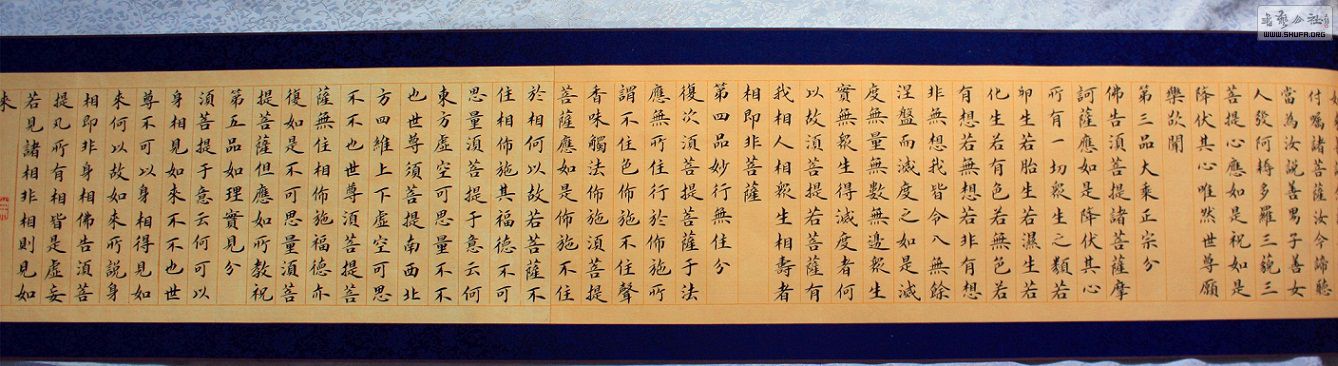 付囑諸菩薩汝今諦聽
當為汝說善男子善女
人發阿耨多羅三藐三
菩提心應如是祝如是
降伏其心唯然世尊願
樂欲聞
第三品大乘正宗分
佛告須菩提諸菩薩摩
訶薩應如是降伏其心
所有一切眾生之類若
卵生若胎生若濕生若
化生若有色若無色若
有想若無想若非有想
非無想我皆令入無餘
涅盤而滅度之如是滅
度無量無數無邊眾生
實無眾生得滅度者何
以故須菩提若菩薩有
我相人相眾生相壽者
相即非菩薩
第四品妙行無住分
復次須菩提菩薩于法
應無所住行於佈施所
謂不住色佈施不住聲
香味觸法佈施須菩提
菩薩應如是佈施不住
於相何以故若菩薩不
住相佈施其福德不可
思量須菩提于意云何
東方虛空可思量不不
也世尊須菩提南西北
方四維上下虛空可思
不不也世尊須菩提菩
薩無住相佈施福德亦
復如是不可思量須菩
提菩薩但應如所教祝
第五品如理實見分
須菩提于意云何可以
身相見如來不不也世
尊不可以身相得見如
來何以故如來所說身
相即非身相佛告須菩
提凡所有相皆是虛妄
若見諸相非相則見如
來
WWW.SHUFA.ORG